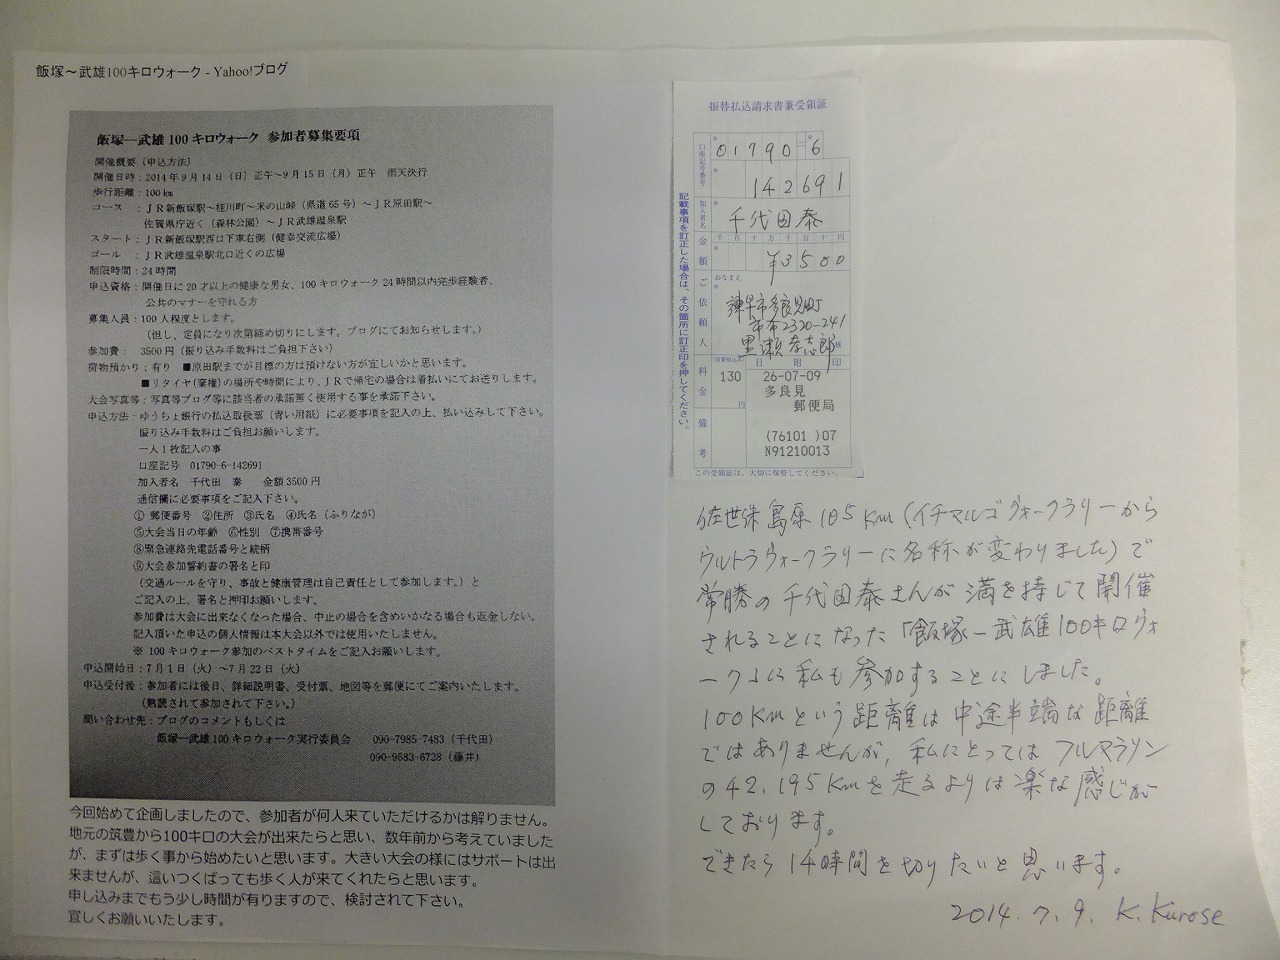 飯塚～武雄100キロウォーク - Yahoo!ブログ
飯塚―武雄 100 キロウォーク 参加者募集要項
開催概要（申込方法）
開催日時：2014 年 9 月 14 日（日）正午～9 月 15 日（月）正午　雨天決行
歩行距離：100 km
コース　：ＪＲ新飯塚駅～桂川町～米の山峠（県道 65 号）～ＪＲ原田駅～
佐賀県庁近く（森林公園）～ＪＲ武雄温泉駅
スタート：ＪＲ新飯塚駅西口下車右側（健幸交流広場）
ゴール　：ＪＲ武雄温泉駅北口近くの広場
制限時間：24 時間
申込資格：開催日に 20 才以上の健康な男女、100 キロウォーク 24 時間以内完歩経験者、
公共のマナーを守れる方
募集人員：100 人程度とします。
（但し、定員になり次第締め切りにします。ブログにてお知らせします。）
参加費：　3500円（振り込み手数料はご負担下さい）
荷物預かり：有り　■原田駅までが目標の方は預けない方が宜しいかと思います。
■リタイヤ(棄権)の場所や時間により、ＪＲで帰宅の場合は着払いにてお送りします。
大会写真等：写真等ブログ等に該当者の承諾無く使用する事を承諾下さい。
申込方法：ゆうちょ銀行の払込取扱票（青い用紙）に必要事項を記入の上、払い込みして下さい。
振り込み手数料はご負担お願いします。
一人 1 枚記入の事
口座記号　01790-6-142691
加入者名　千代田　泰　　金額 3500 円
通信欄に必要事項をご記入下さい。
① 郵便番号　②住所　③氏名　④氏名（ふりなが）
⑤大会当日の年齢　⑥性別　⑦携帯番号
⑧緊急連絡先電話番号と続柄
⑨大会参加誓約書の署名と印
（交通ルールを守り、事故と健康管理は自己責任として参加します。）と
ご記入の上、署名と押印お願いします。
参加費は大会に出来なくなった場合、中止の場合を含めいかなる場合も返金しない。
記入頂いた申込の個人情報は本大会以外では使用いたしません。
※ 100 キロウォーク参加のベストタイムをご記入お願いします。
申込開始日：7 月 1 日（火）～7 月 22 日（火）
申込受付後：参加者には後日、詳細説明書、受付票、地図等を郵便にてご案内いたします。
（熟読されて参加されて下さい。）
問い合わせ先：ブログのコメントもしくは
飯塚―武雄 100 キロウォーク実行委員会　　090-7985-7483（千代田）
090-9583-6728（藤井）
今回始めて企画しましたので、参加者が何人来ていただけるかは解りません。
地元の筑豊から100キロの大会が出来たらと思い、数年前から考えていました
が、まずは歩く事から始めたいと思います。大きい大会の様にはサポートは出
来ませんが、這いつくばっても歩く人が来てくれたらと思います。
申し込みまでもう少し時間が有りますので、検討されて下さい。
宜しくお願いいたします。
振替払込請求書兼受領証
口座記号番号
01790-6
142691
加入者名
千代田泰
金額
千 百 十 万 千 百 十 円
¥3500
ご依頼人
おなまえ
諫早市多良見町
市布2320-241
黒瀬孝志郎 様
(消費税込み)
料金
130 円
日 附 印
26-07-09
多良見
郵便局
(76101 )07
N91210013
備考
この受領証は、大切に保管してください。
記載事項を訂正した場合は、その箇所に訂正印を押してください。
佐世保島原105Km（イチマルゴウォークラリーから
ウルトラウォークラリーに名称が変わりました）で
常勝の千代田泰さんが満を持して開催
されることになった「飯塚―武雄100キロウォ
ーク」に私も参加することにしました。
100Kmという距離は中途半端な距離
ではありませんが、私にとってはフルマラソン
の42.195Kmを走るよりは楽な感じが
しております。
できたら14時間を切りたいと思います。
2014.7.9. K.Kurose